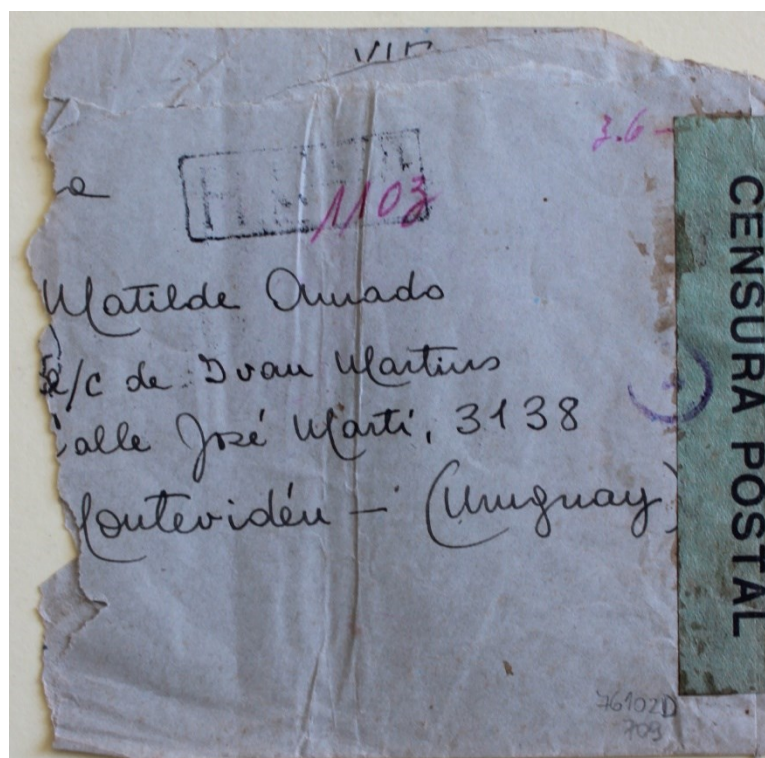 3.6-
1103
a
Matilde Amado
a/c de Ivan Martins
Calle José Martí, 3138
Montevidéu - (Uruguay)
CENSURA POSTAL
76102D
709